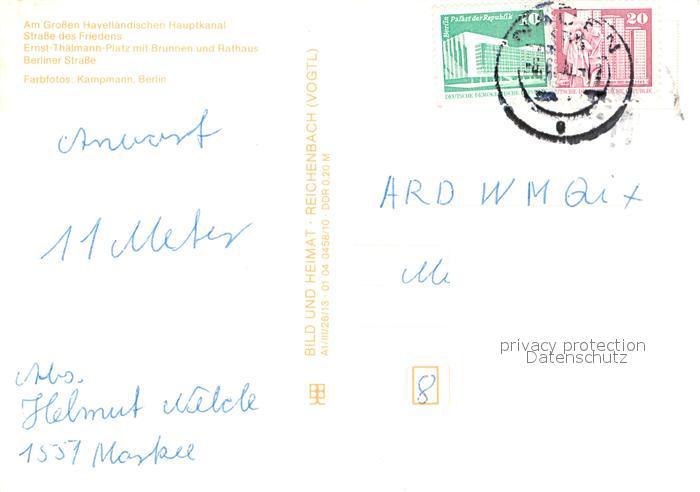 Am Großen Havelländischen Hauptkanal
Straße des Friedens
Ernst-Thälmann-Platz mit Brunnen und Rathaus
Berliner Straße
Farbfotos: Kampmann, Berlin
Anwort
11 Meter
Abs.
Helmut
1551 Markee
BILD UND HEIMAT · REICHENBACH (VOGTL)
A1/III/26/13 · 01 04 0458/10 · DDR 0,20 M
Berlin Palast der Republik
10
DEUTSCHE DEMOKRATISCHE
20
REPUBLIK
NAUEN
ARD WM Qix
8
privacy protection
Datenschutz